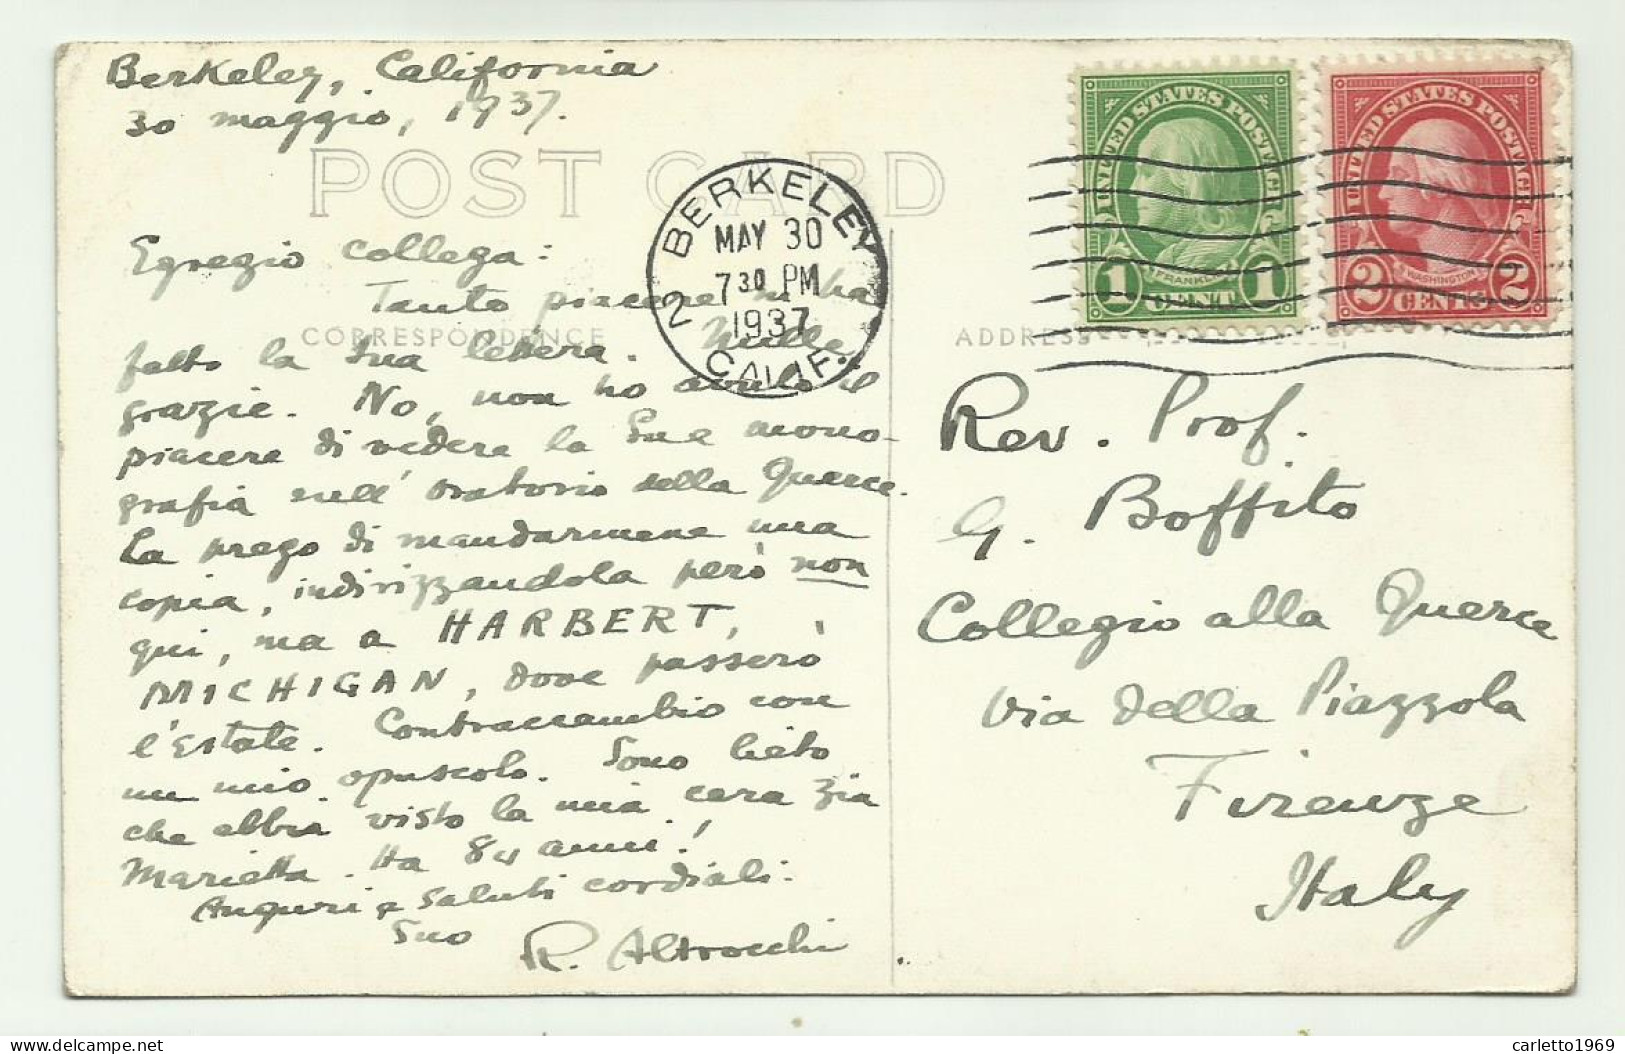 Berkeley, California
30 maggio, 1937.
POST CARD
Egregio collega:
Tanto piacere m'ha
CORRESPONDENCE
fatto la Sua lettera. Mille
grazie. No, non ho avuto il
piacere di vedere la Sua mono-
grafia sull' Oratorio della Querce.
La prego di mandarmene una
copia, indirizzandola però non
qui, ma a HARBERT,
MICHIGAN, dove passerò
l'estate. Contraccambio con
un mio opuscolo. Sono lieto
che abbia visto la mia cara zia
Marietta. Ha 84 anni!
Auguri e saluti cordiali.
Suo
R. Altrocchi
2 BERKELEY
MAY 30
7 30 PM
1937
CALIF.
UNITED STATES POSTAGE
FRANKLIN
1 CENT 1
UNITED STATES POSTAGE
WASHINGTON
2 CENTS 2
ADDRESS
Rev. Prof.
G. Boffito
Collegio alla Querce
Via della Piazzola
Firenze
Italy
www.delcampe.net
carletto1969